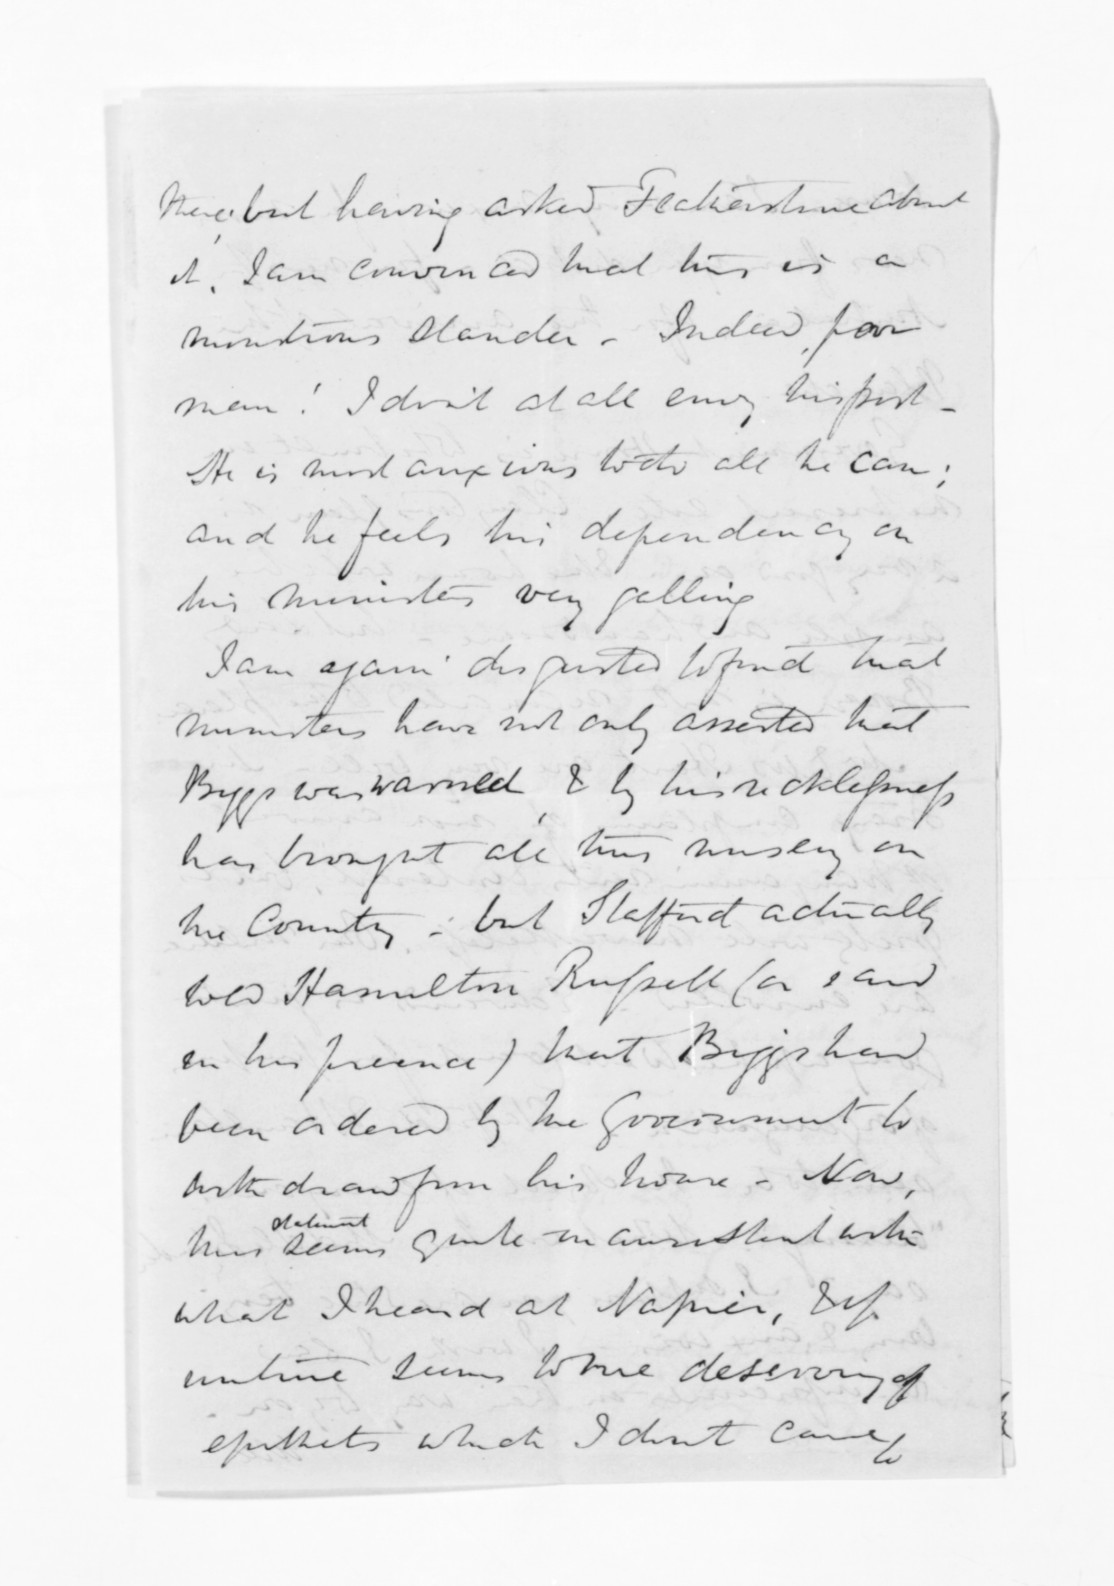 there; but having asked Featherstone about
it, I am convinced that this is a
monstrous slander - Indeed, poor
man! I don't at all envy his post -
He is most anxious to do all he can;
and he feels his dependency on
his ministers very galling
I am again disgusted to find that
ministers have not only asserted that
Biggs was warned, & by his recklessness
has brought all this misery on
the Country; but Stafford actually
told Hamilton Russell (or said
in his presence) that Biggs had
been ordered by the Government to
withdraw from his house - Now,
this statement seems quite inconsistent with
what I heard at Napier, & if
untrue seems to me deserving of
epithets which I don't care to